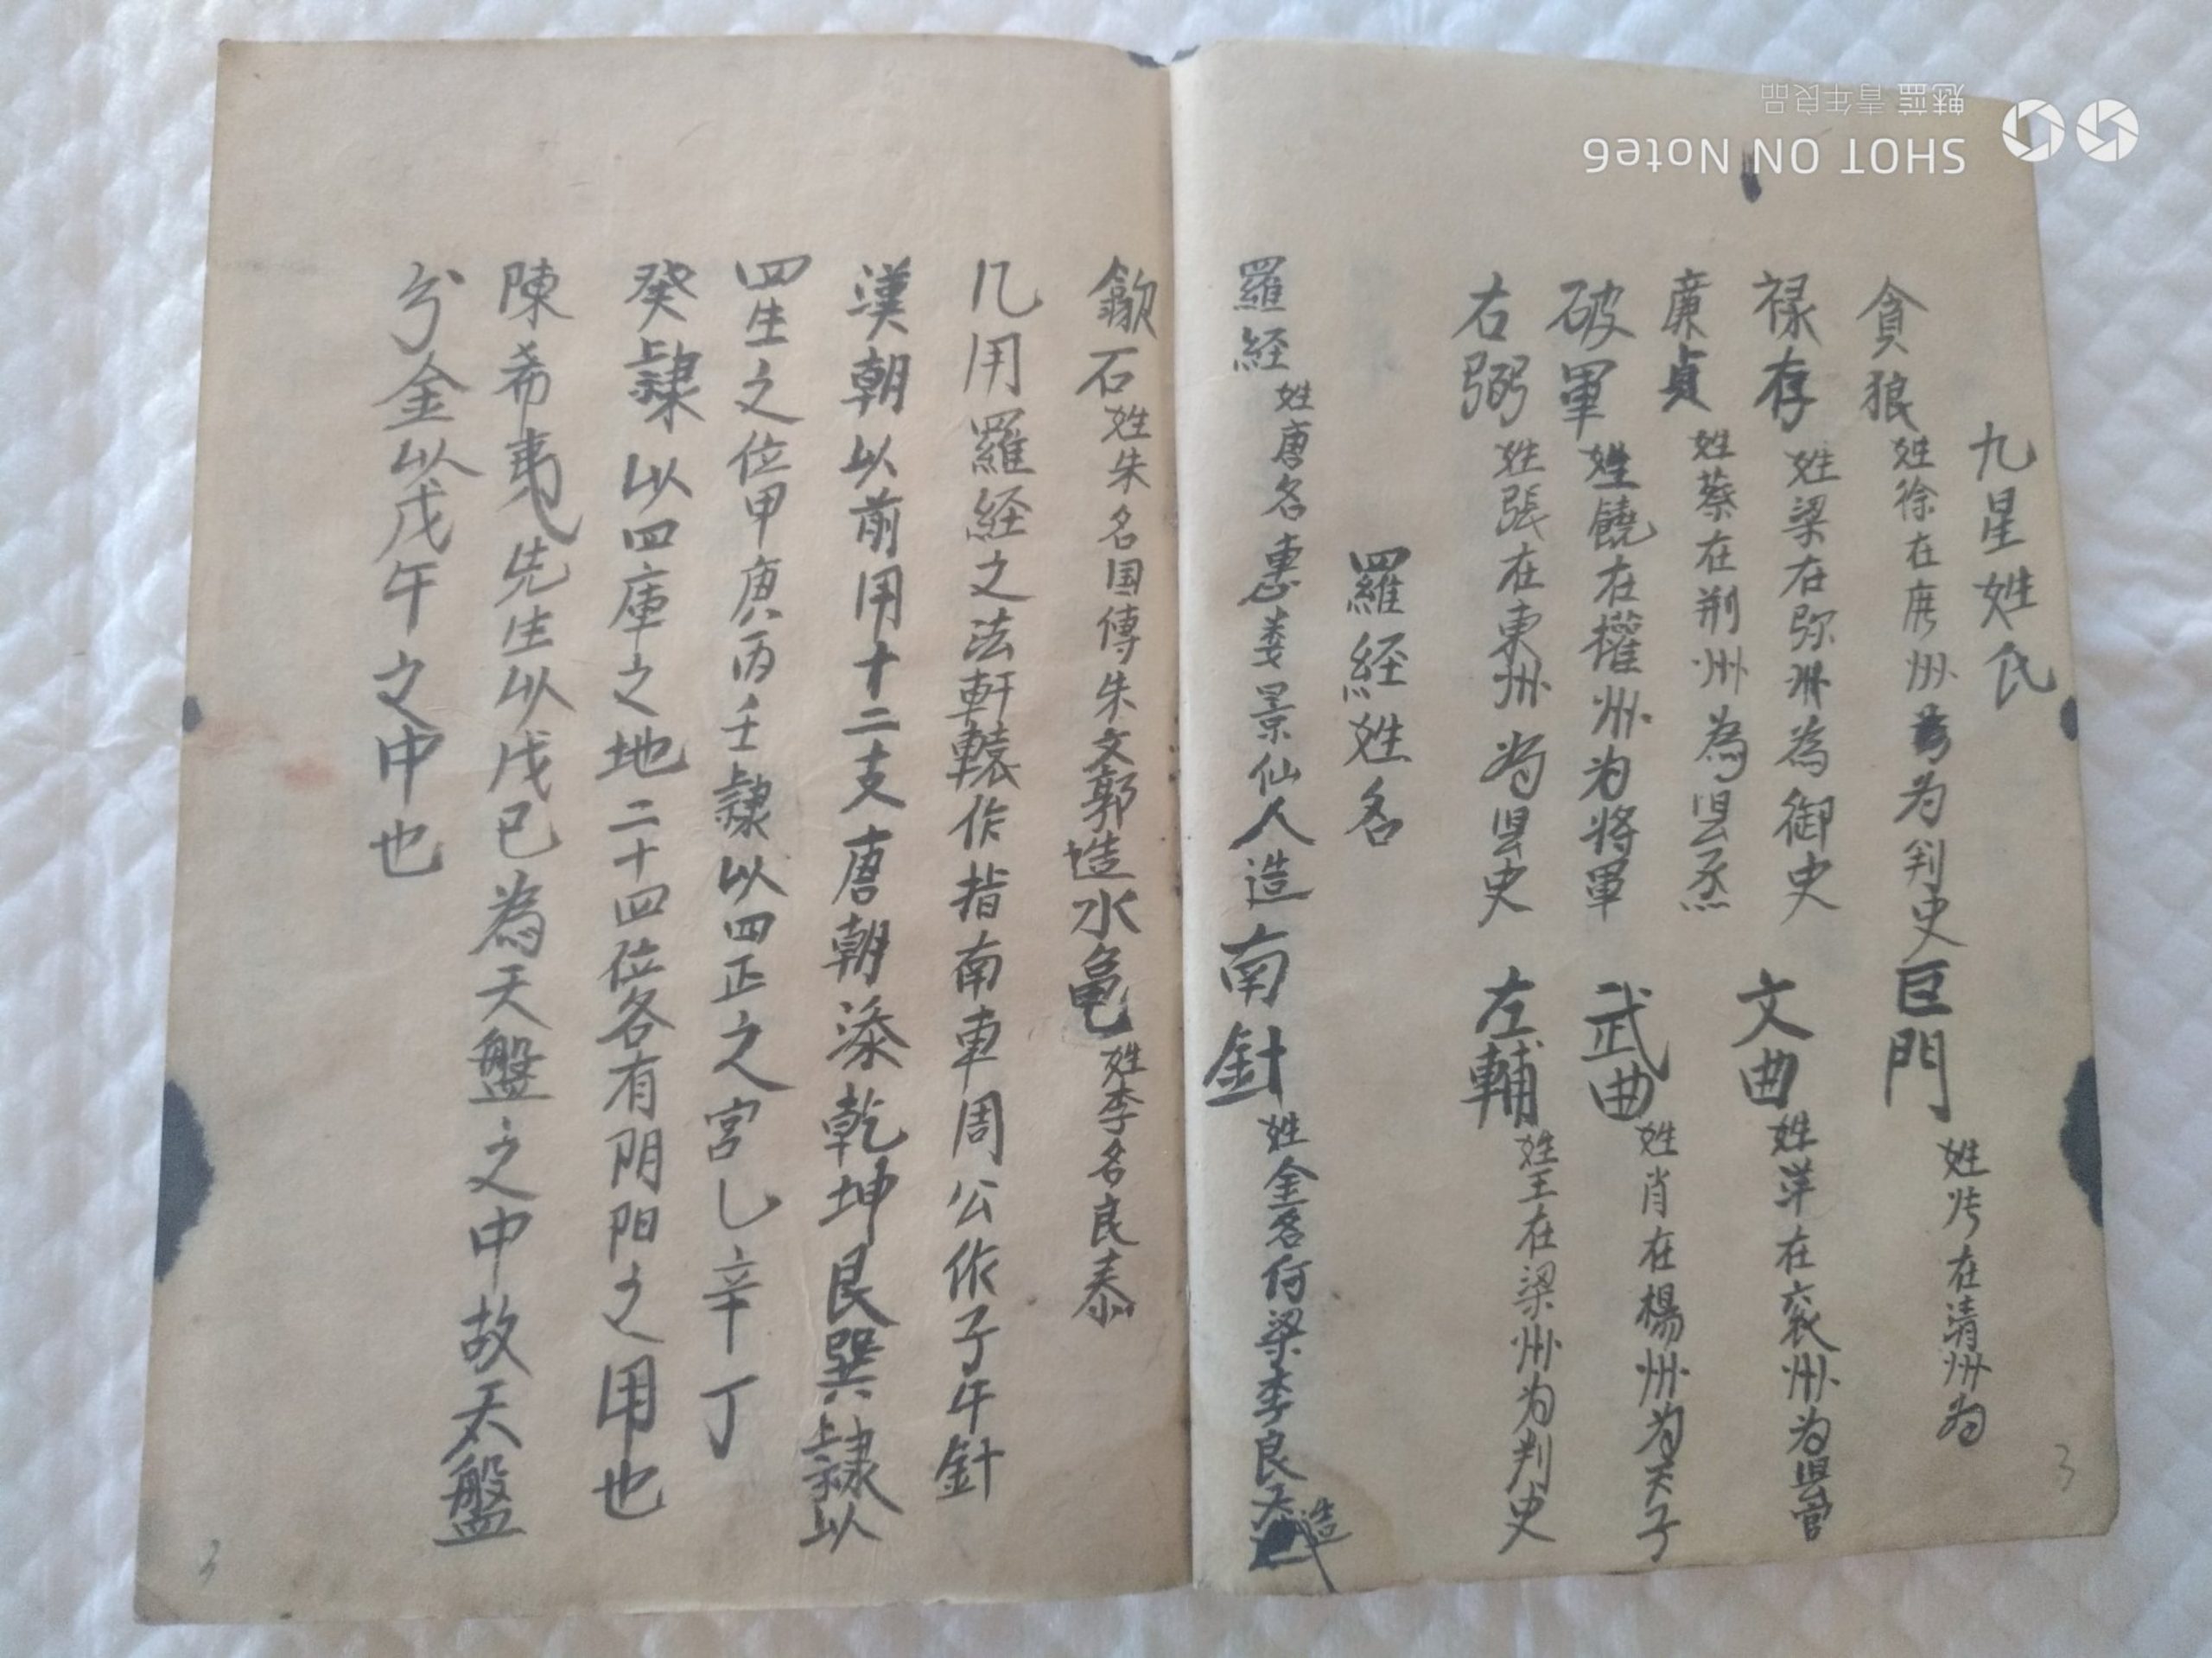 九星姓氏
貪狼 姓徐在 州 为判史 巨門 姓 在清州为
禄存 姓梁在弥州為御史 文曲 姓萍在衮州为县官
廉貞 姓蔡在荆州為县丞 武曲 姓肖在楊州为天子
破軍 姓饒在權州为將軍 左輔 姓王在梁州为判史
右弼 姓張在東州为县史
羅経姓名
羅経 姓唐名惠娄景仙人造 南針 姓金名何梁李良 造
歙石 姓朱名国傳朱文郭造 水亀 姓李名良泰
凡用羅経之法軒轅作指南車周公作子午針
漢朝以前用十二支唐朝添乾坤艮巽隷以
四生之位甲庚丙壬隷以四正之宮乚辛丁
癸隷以四庫之地二十四位各有阴阳之用也
陳希夷先生以戊已為天盤之中故天盤
分金以戊午之中也
3
3
SHOT ON Note6
魅蓝 青年良品